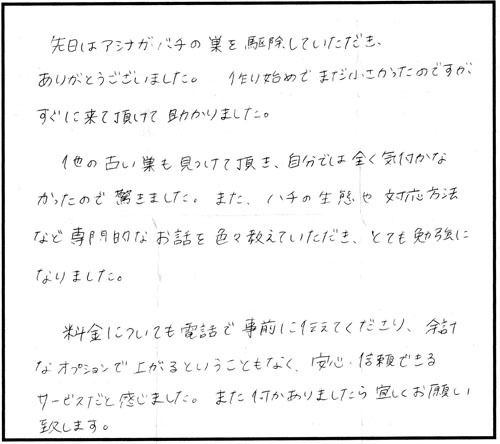 先日はアシナガバチの巣を駆除していただき、
ありがとうございました。 作り始めでまだ小さかったのですが、
すぐに来て頂けて助かりました。
他の古い巣も見つけて頂き、自分では全く気付かな
かったので驚きました。また、ハチの生態や対応方法
など専門的なお話を色々教えていただき、とても勉強に
なりました。
料金についても電話で事前に伝えてくださり、余計
なオプションで上がるということもなく、安心・信頼できる
サービスだと感じました。また何かありましたら宜しくお願い
致します。